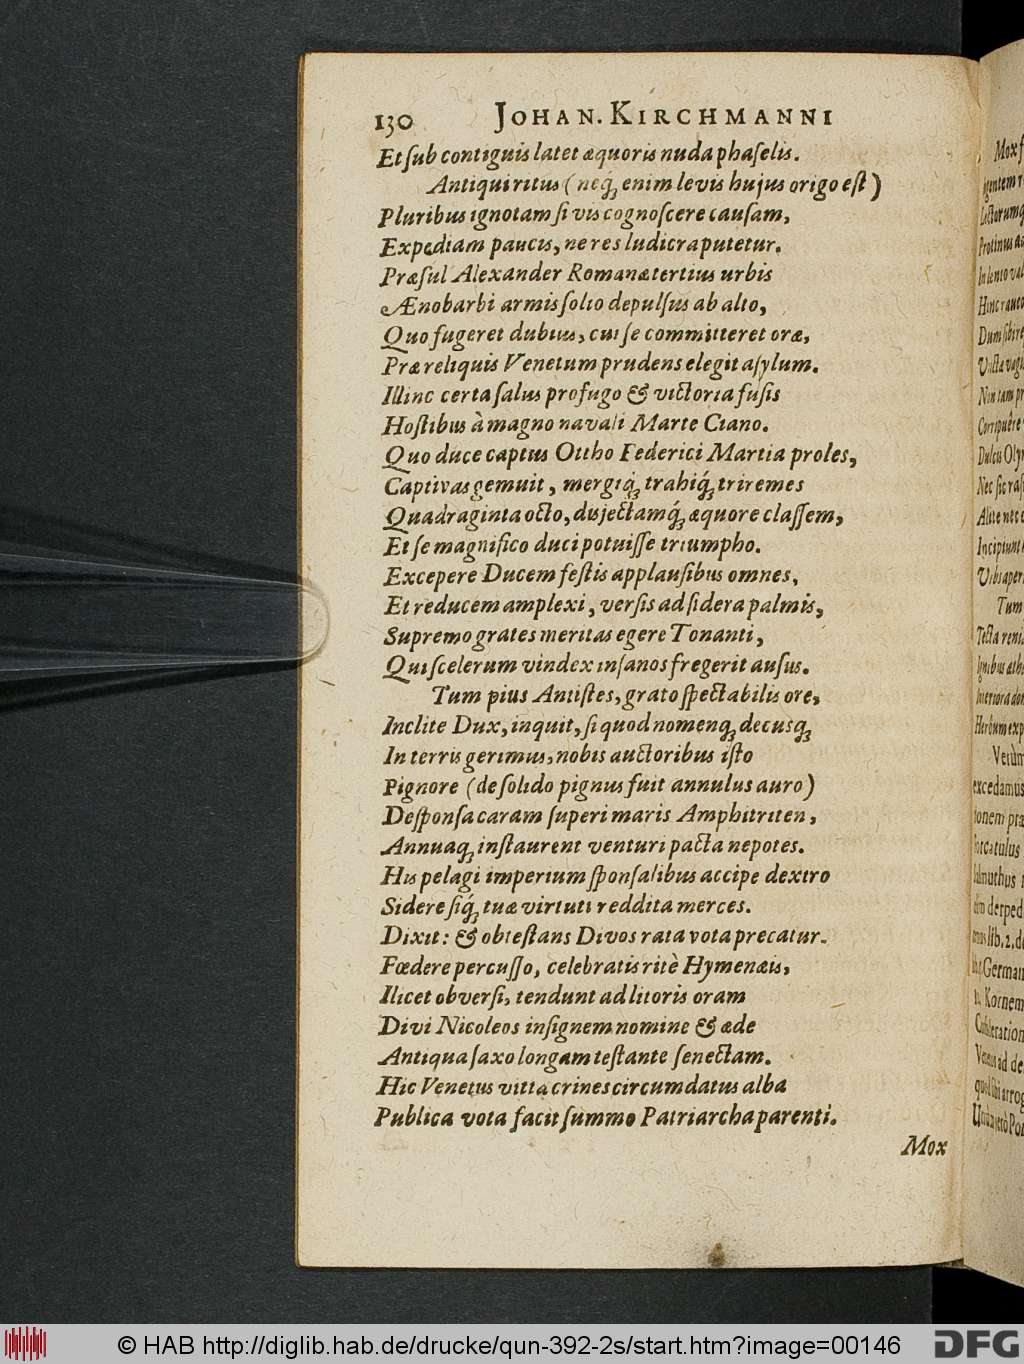 130 JOHAN. KIRCHMANNI
Et ſub contiguis latet æquoris nuda phaſelis.
Antiqui ritus (neq́ꝫ enim levis hujus origo eſt)
Pluribus ignotam ſi vis cognoſcere cauſam,
Expediam paucis, ne res ludicra putetur.
Præſul Alexander Romanæ tertius urbis
Ænobarbi armis ſolio depulſus ab alto,
Quo fugeret dubius, cui ſe committeret oræ,
Præ reliquis Venetum prudens elegit aſylum.
Illinc certa ſalus profugo & victoria fuſis
Hoſtibus à magno navali Marte Ciano.
Quo duce captus Ottho Federici Martia proles,
Captivas gemuit, mergiq́ꝫ trahiq́ꝫ triremes
Quadraginta octo, disjectamq́ꝫ æquore claſſem,
Et ſe magnifico duci potuiſſe triumpho.
Excepere Ducem feſtis applauſibus omnes,
Et reducem amplexi, verſis ad ſidera palmis,
Supremo grates meritas egere Tonanti,
Qui ſcelerum vindex inſanos fregerit auſus.
Tum pius Antiſtes, grato ſpectabilis ore,
Inclite Dux, inquit, ſi quod nomenqꝫ decusqꝫ
In terris gerimus, nobis auctoribus iſto
Pignore (de ſolido pignus fuit annulus auro)
Deſponſa caram ſuperi maris Amphitriten,
Annuaqꝫ inſtaurent venturi pacta nepotes.
His pelagi imperium ſponſalibus accipe dextro
Sidere ſiq́ꝫ tuæ virtuti reddita merces.
Dixit: & obteſtans Divos rata vota precatur.
Fœdere percuſſo, celebratis ritè Hymenæis,
Ilicet obverſi, tendunt ad litoris oram
Divi Nicoleos inſignem nomine & æde
Antiqua ſaxo longam teſtante ſenectam.
Hic Venetus vitta crines circumdatus alba
Publica vota facit ſummo Patriarcha parenti.
Mox
© HAB http://diglib.hab.de/drucke/qun-392-2s/start.htm?image=00146
DFG